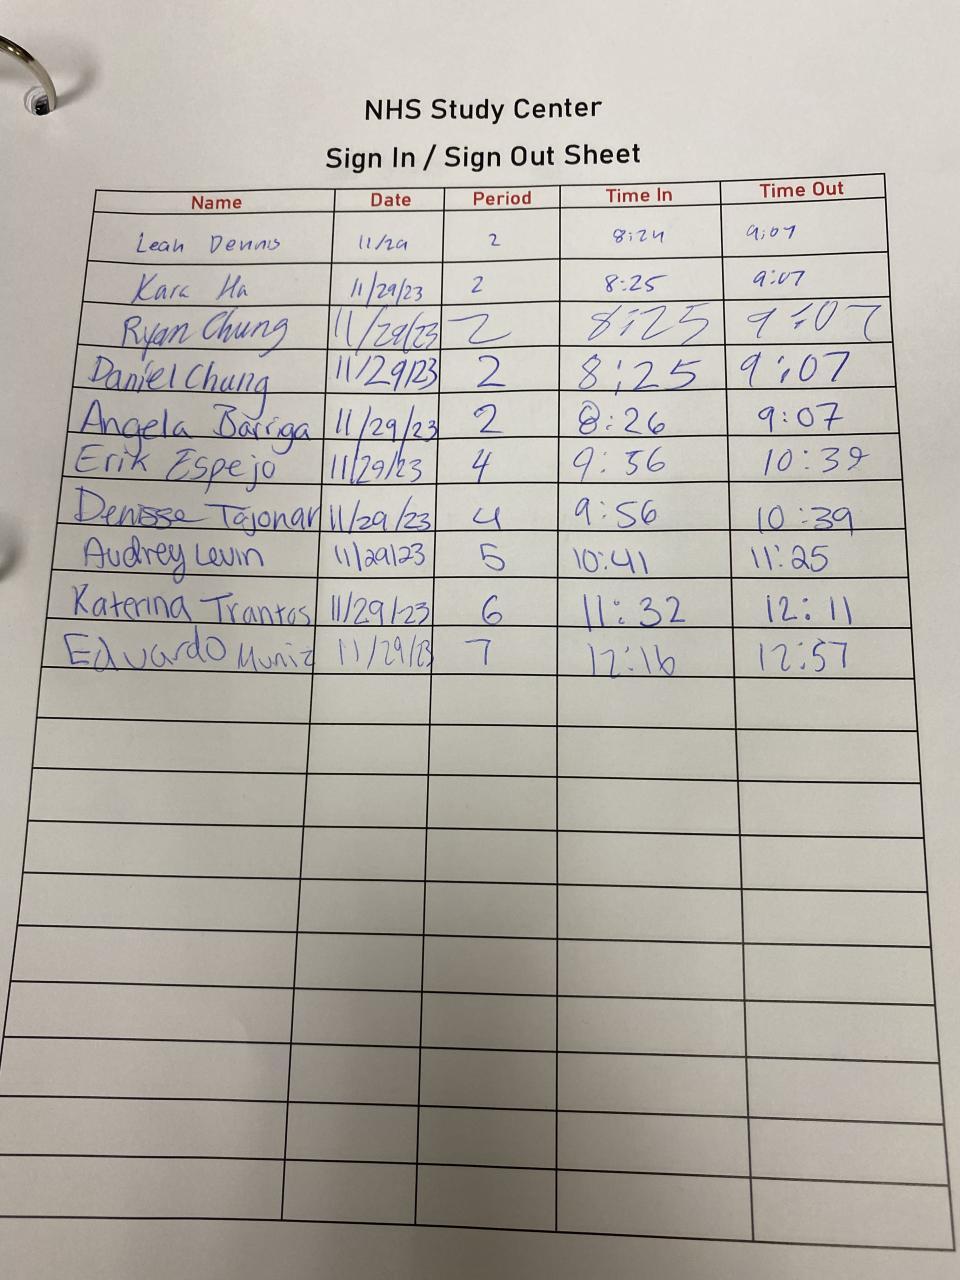 NHS Study Center
Sign In / Sign Out Sheet
Name Date Period Time In Time Out
Leah Dennis 11/29 2 8:24 9:07
Kara Ha 11/29/23 2 8:25 9:07
Ryan Chung 11/29/23 2 8:25 9:07
Daniel Chung 11/29/23 2 8:25 9:07
Angela Barriga 11/29/23 2 8:26 9:07
Erik Espejo 11/29/23 4 9:56 10:39
Denisse Tajonar 11/29/23 4 9:56 10:39
Audrey Levin 11/29/23 5 10:41 11:25
Katerina Trantos 11/29/23 6 11:32 12:11
Eduardo Muniz 11/29/23 7 12:16 12:57